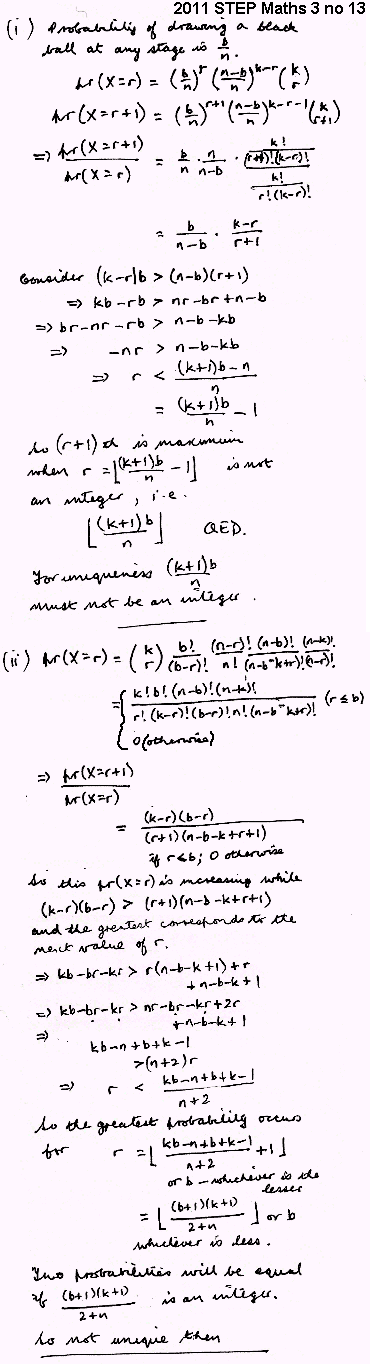 2011 STEP Maths 3 no 13
(i) Probability of drawing a black
ball at any stage is b/n.
pr(X=r) = (b/n)^r ((n-b)/n)^(k-r) (k r)
pr(X=r+1) = (b/n)^(r+1) ((n-b)/n)^(k-r-1) (k r+1)
⇒ pr(X=r+1)/pr(X=r) = b/n · n/(n-b) · (k!/((r+1)!(k-r-1)!))/(k!/(r!(k-r)!))
= b/(n-b) · (k-r)/(r+1)
Consider (k-r)b > (n-b)(r+1)
⇒ kb-rb > nr-br+n-b
⇒ br-nr-rb > n-b-kb
⇒ -nr > n-b-kb
⇒ r < ((k+1)b-n)/n
= (k+1)b/n - 1
So (r+1)th is maximum
when r = ⌊(k+1)b/n - 1⌋ is not
an integer, i.e.
⌊(k+1)b/n⌋ QED.
For uniqueness (k+1)b/n
must not be an integer.
(ii) pr(X=r) = (k r) b!/(b-r)! (n-r)!/n! (n-b)!/(n-b-k+r)! (n-k)!/(n-r)!
= { k!b!(n-b)!(n-k)!/(r!(k-r)!(b-r)!n!(n-b-k+r)!) (r≤b)
0 (otherwise)
⇒ pr(X=r+1)/pr(X=r)
= (k-r)(b-r)/((r+1)(n-b-k+r+1))
if r<b; 0 otherwise
So this pr(X=r) is increasing while
(k-r)(b-r) > (r+1)(n-b-k+r+1)
and the greatest corresponds to the
next value of r.
⇒ kb-br-kr > r(n-b-k+1)+r
+n-b-k+1
⇒ kb-br-kr > nr-br-kr+2r
+n-b-k+1
⇒ kb-n+b+k-1
>(n+2)r
⇒ r < (kb-n+b+k-1)/(n+2)
So the greatest probability occurs
for r = ⌊(kb-n+b+k-1)/(n+2) + 1⌋
or b - whichever is the
lesser
= ⌊(b+1)(k+1)/(2+n)⌋ or b
whichever is less.
Two probabilities will be equal
if (b+1)(k+1)/(2+n) is an integer.
So not unique then